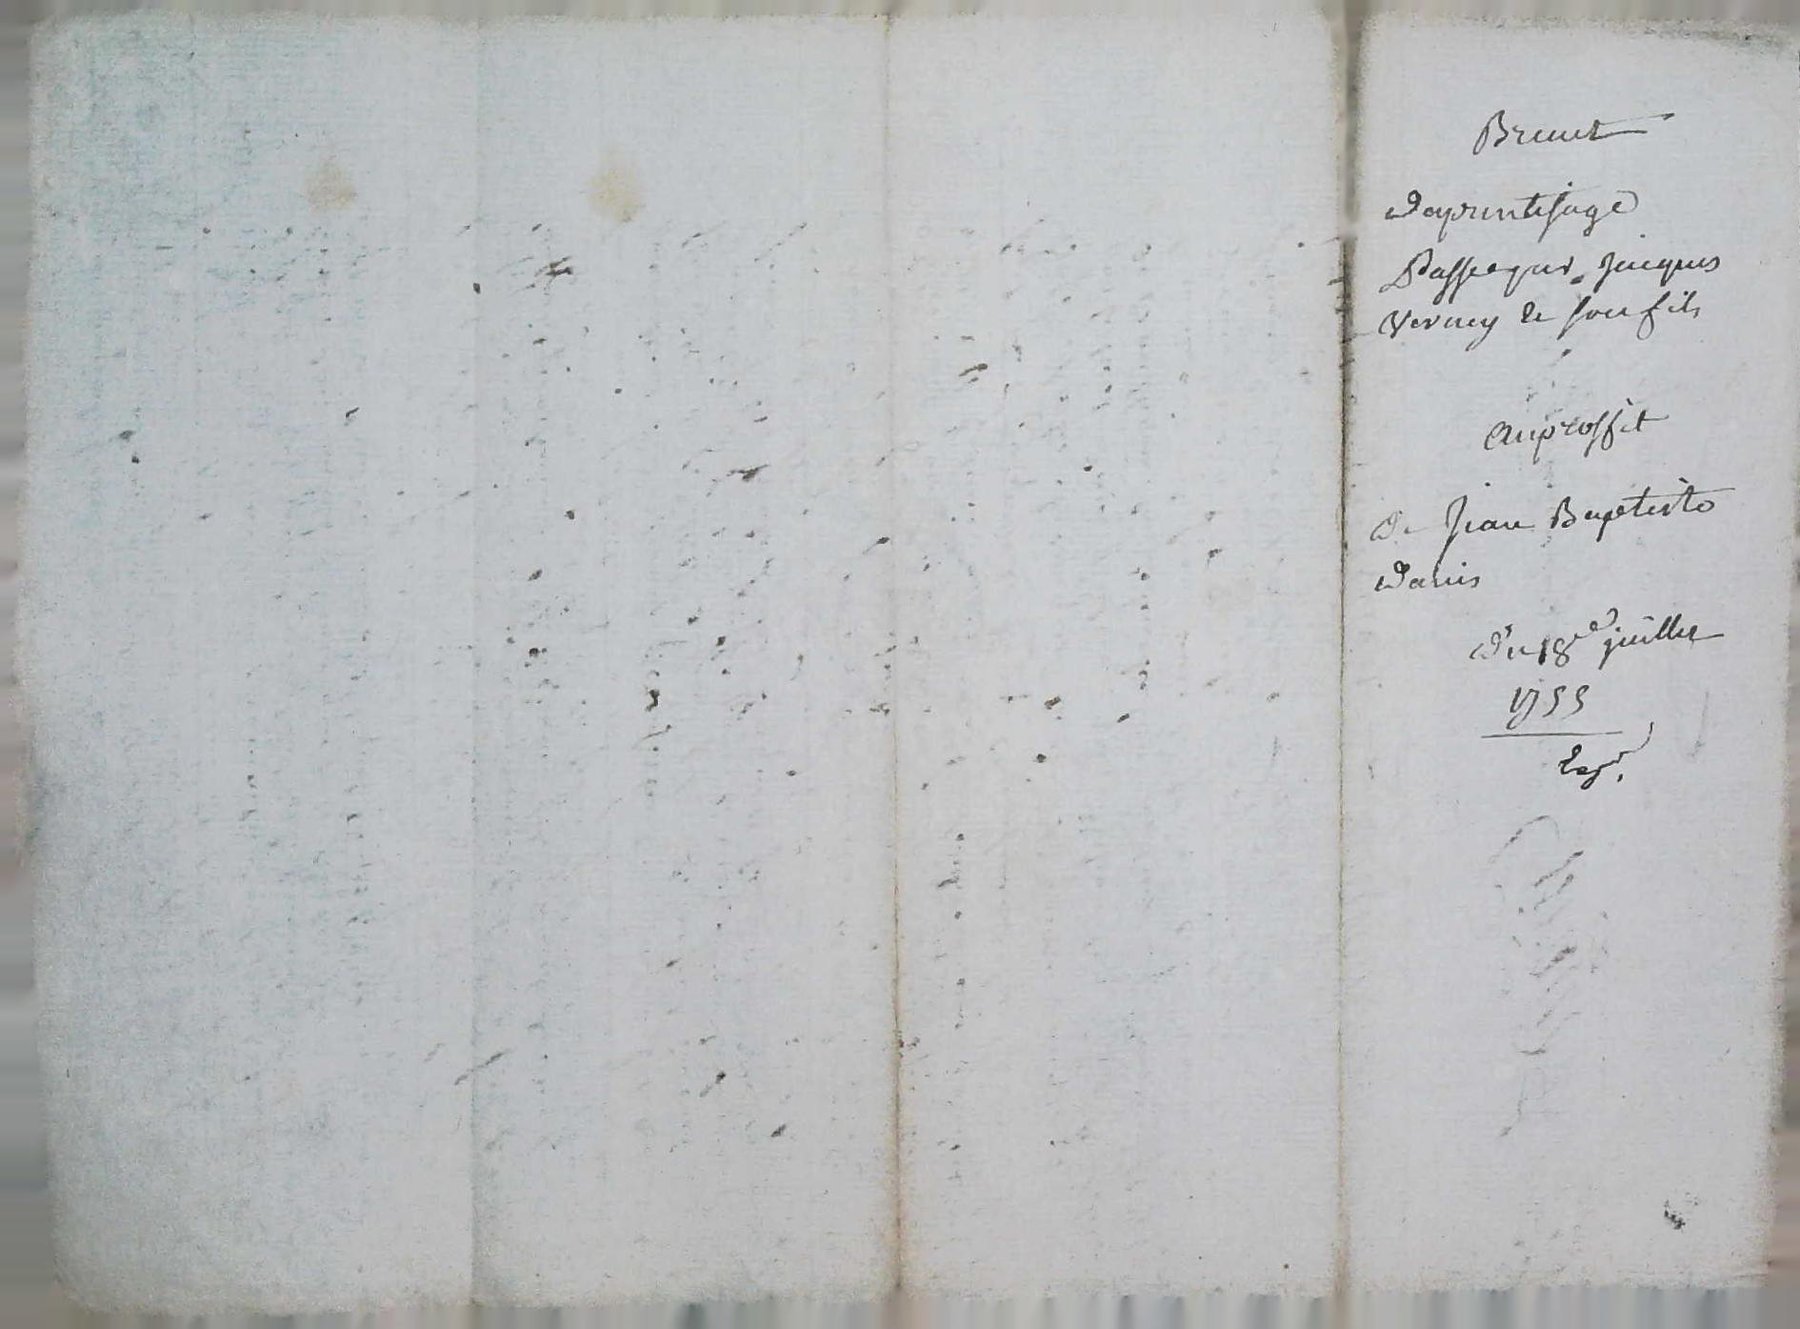 Brevet
Daprentisage
Passé par Jacques
Verney & son fils
Auproffit
De Jean Baptiste
Danis
Du 18e juillet
1755
Exp.